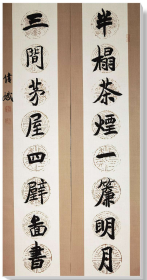 半榻茶煙一簾明月
三間茅屋四壁圖書